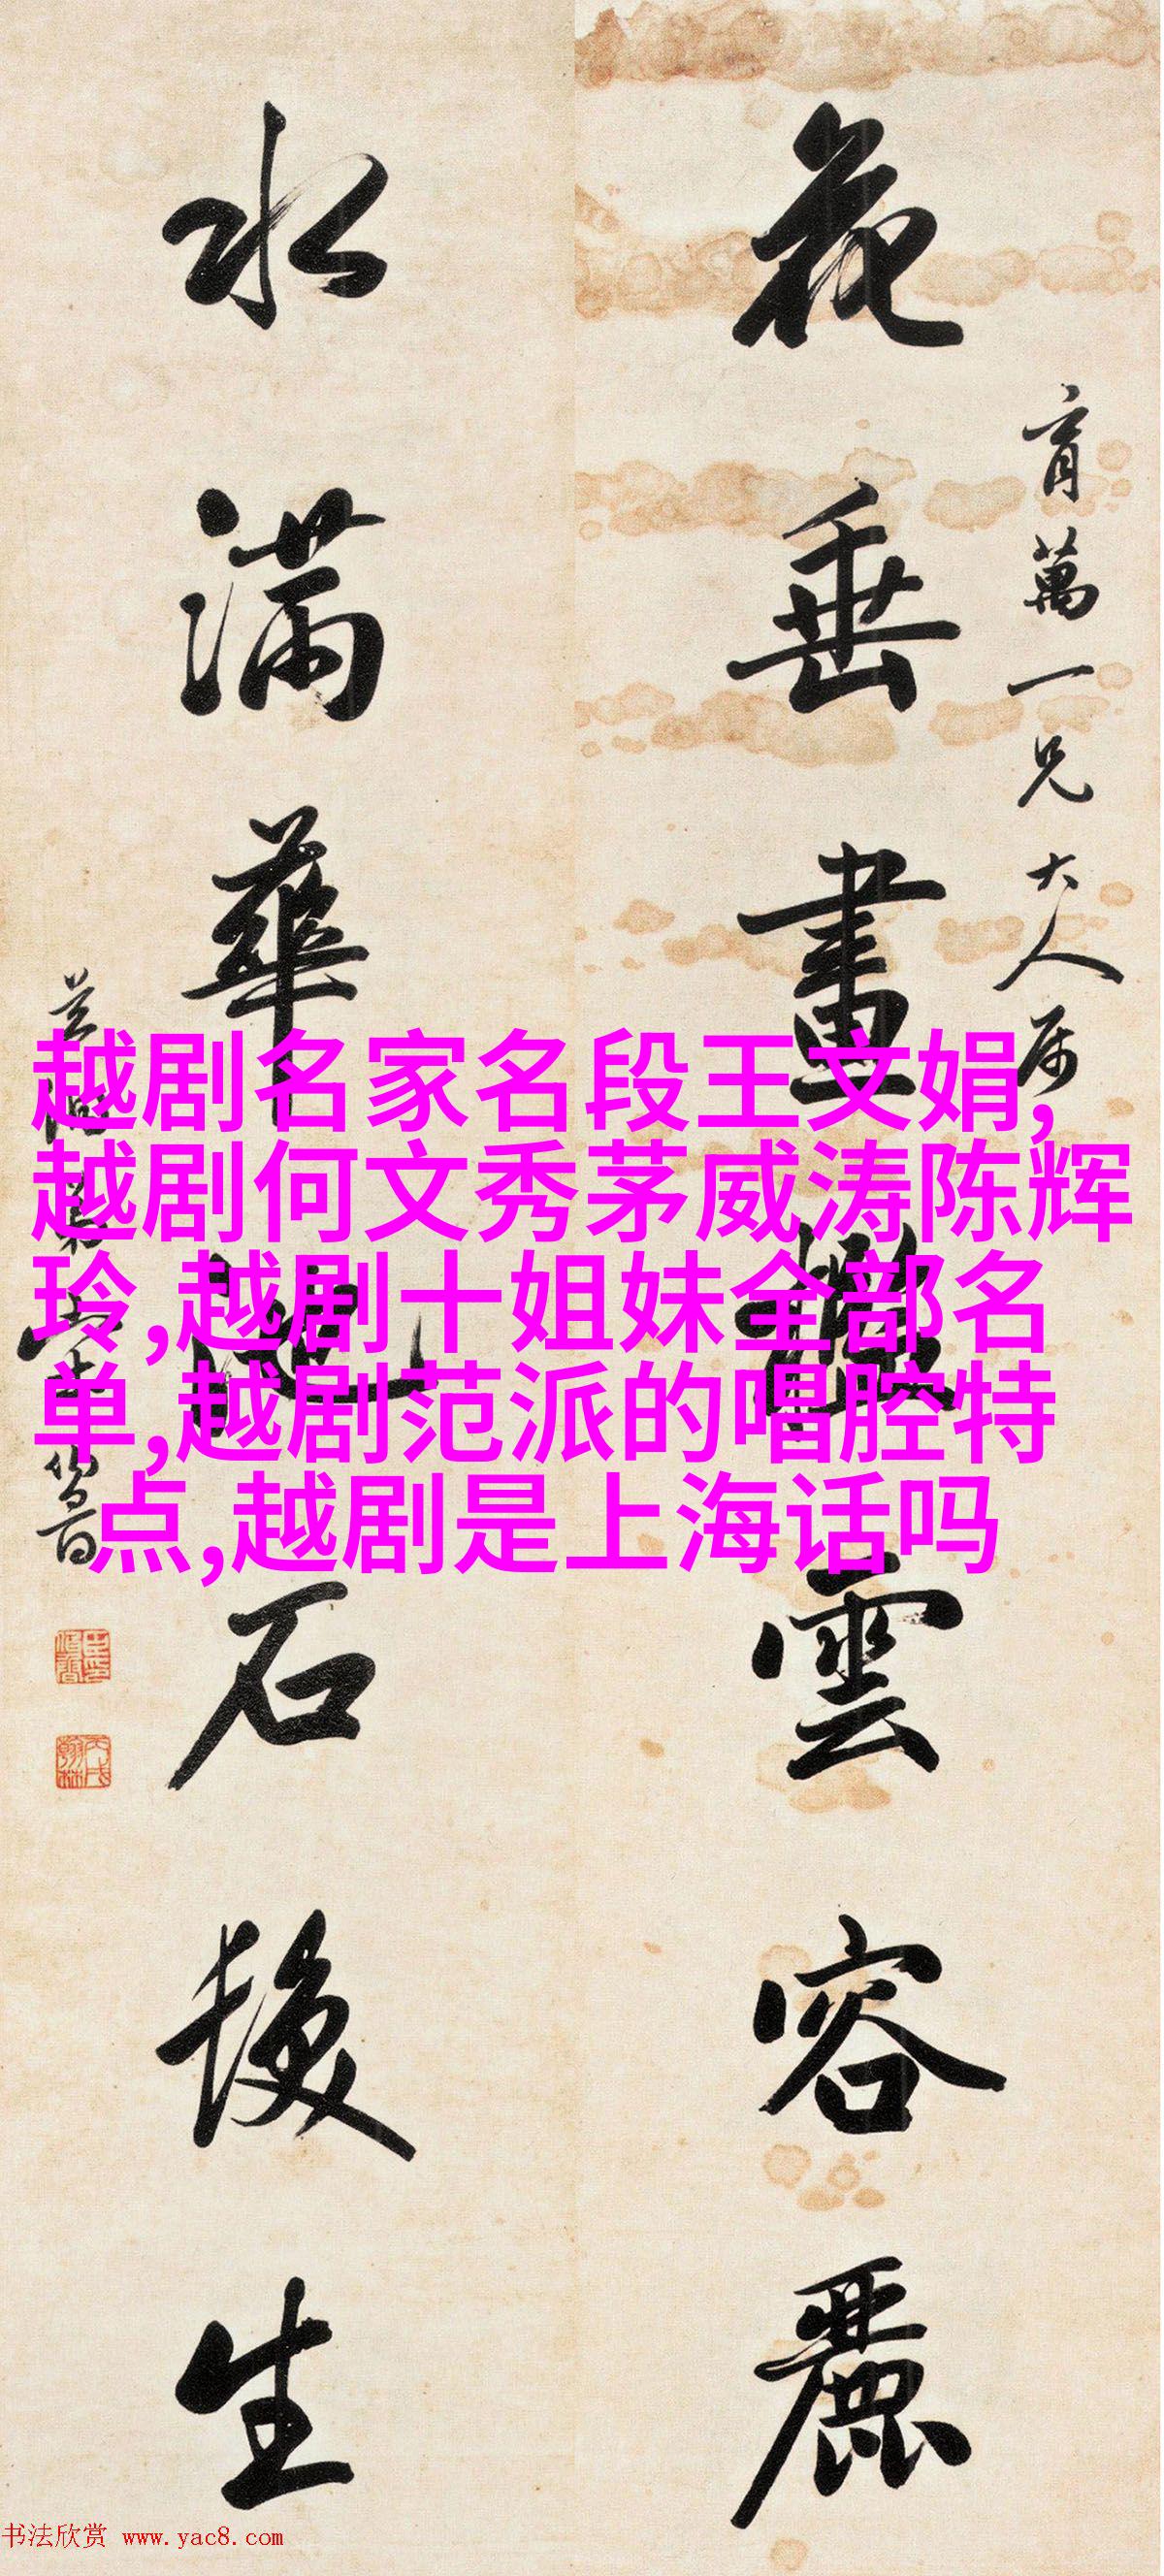 花垂畫檻雲容麗
育萬一兄大人屬
水滿華池石髮生
越剧名家名段王文娟,
越剧何文秀茅威涛陈辉
玲,越剧十姐妹全部名
单,越剧范派的唱腔特
点,越剧是上海话吗
书法欣赏 www.yac8.com